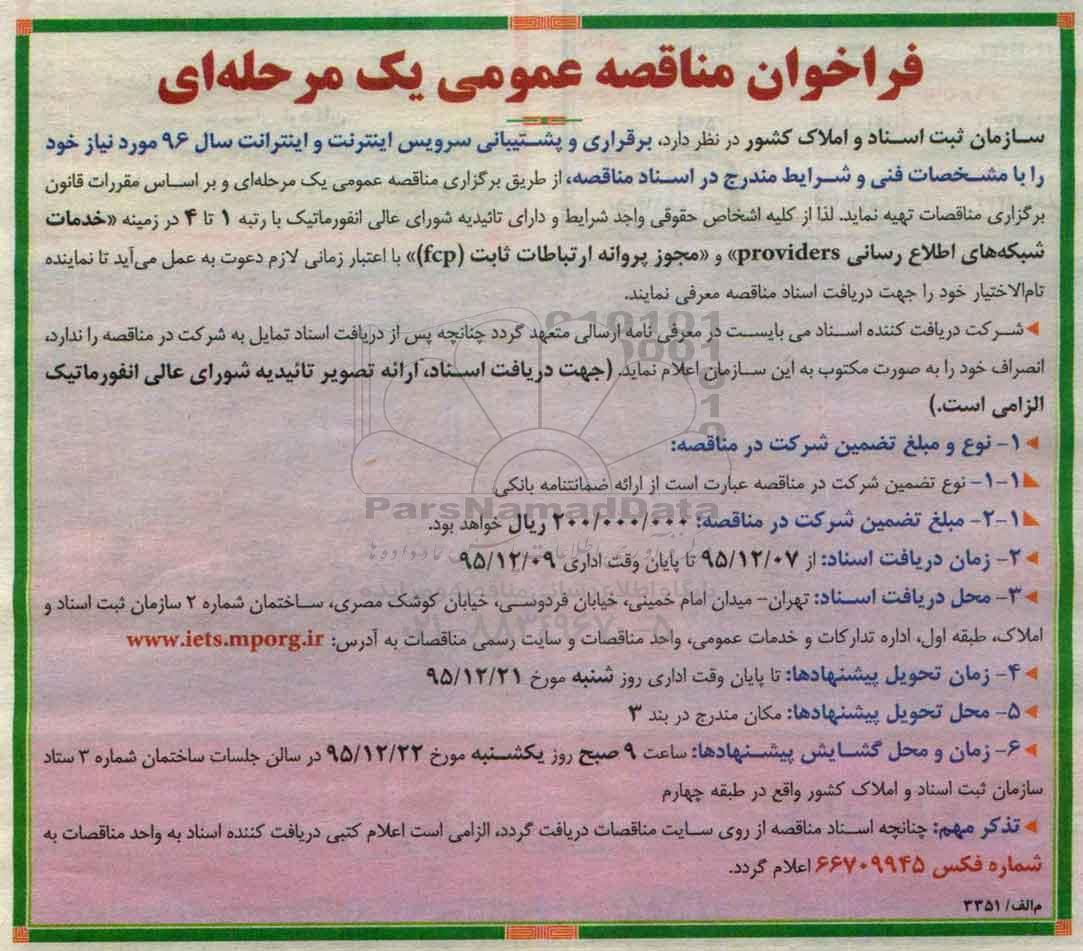 فراخوان مناقصه عمومی یک مرحله‌ای
سازمان ثبت اسناد و املاک کشور در نظر دارد، برقراری و پشتیبانی سرویس اینترنت و اینترانت سال ۹۶ مورد نیاز خود
را با مشخصات فنی و شرایط مندرج در اسناد مناقصه، از طریق برگزاری مناقصه عمومی یک مرحله‌ای و بر اساس مقررات قانون
برگزاری مناقصات تهیه نماید. لذا از کلیه اشخاص حقوقی واجد شرایط و دارای تائیدیه شورای عالی انفورماتیک با رتبه ۱ تا ۴ در زمینه «خدمات
شبکه‌های اطلاع رسانی providers» و «مجوز پروانه ارتباطات ثابت (fcp)» با اعتبار زمانی لازم دعوت به عمل می‌آید تا نماینده
تام‌الاختیار خود را جهت دریافت اسناد مناقصه معرفی نمایند.
شرکت دریافت کننده اسناد می بایست در معرفی نامه ارسالی متعهد گردد چنانچه پس از دریافت اسناد تمایل به شرکت در مناقصه را ندارد،
انصراف خود را به صورت مکتوب به این سازمان اعلام نماید. (جهت دریافت اسناد، ارائه تصویر تائیدیه شورای عالی انفورماتیک
الزامی است.)
۱- نوع و مبلغ تضمین شرکت در مناقصه:
۱-۱- نوع تضمین شرکت در مناقصه عبارت است از ارائه ضمانتنامه بانکی
۲-۱- مبلغ تضمین شرکت در مناقصه: ۲۰۰/۰۰۰/۰۰۰ ریال خواهد بود.
ParsNamadData
۲- زمان دریافت اسناد: از ۹۵/۱۲/۰۷ تا پایان وقت اداری ۹۵/۱۲/۰۹
۳- محل دریافت اسناد: تهران- میدان امام خمینی، خیابان فردوسی، خیابان کوشک مصری، ساختمان شماره ۲ سازمان ثبت اسناد و
املاک، طبقه اول، اداره تدارکات و خدمات عمومی، واحد مناقصات و سایت رسمی مناقصات به آدرس: www.iets.mporg.ir
۴- زمان تحویل پیشنهادها: تا پایان وقت اداری روز شنبه مورخ ۹۵/۱۲/۲۱
۵- محل تحویل پیشنهادها: مکان مندرج در بند ۳
۶- زمان و محل گشایش پیشنهادها: ساعت ۹ صبح روز یکشنبه مورخ ۹۵/۱۲/۲۲ در سالن جلسات ساختمان شماره ۳ ستاد
سازمان ثبت اسناد و املاک کشور واقع در طبقه چهارم
تذکر مهم: چنانچه اسناد مناقصه از روی سایت مناقصات دریافت گردد، الزامی است اعلام کتبی دریافت کننده اسناد به واحد مناقصات به
شماره فکس ۶۶۷۰۹۹۴۵ اعلام گردد.
م‌الف/ ۳۳۵۱